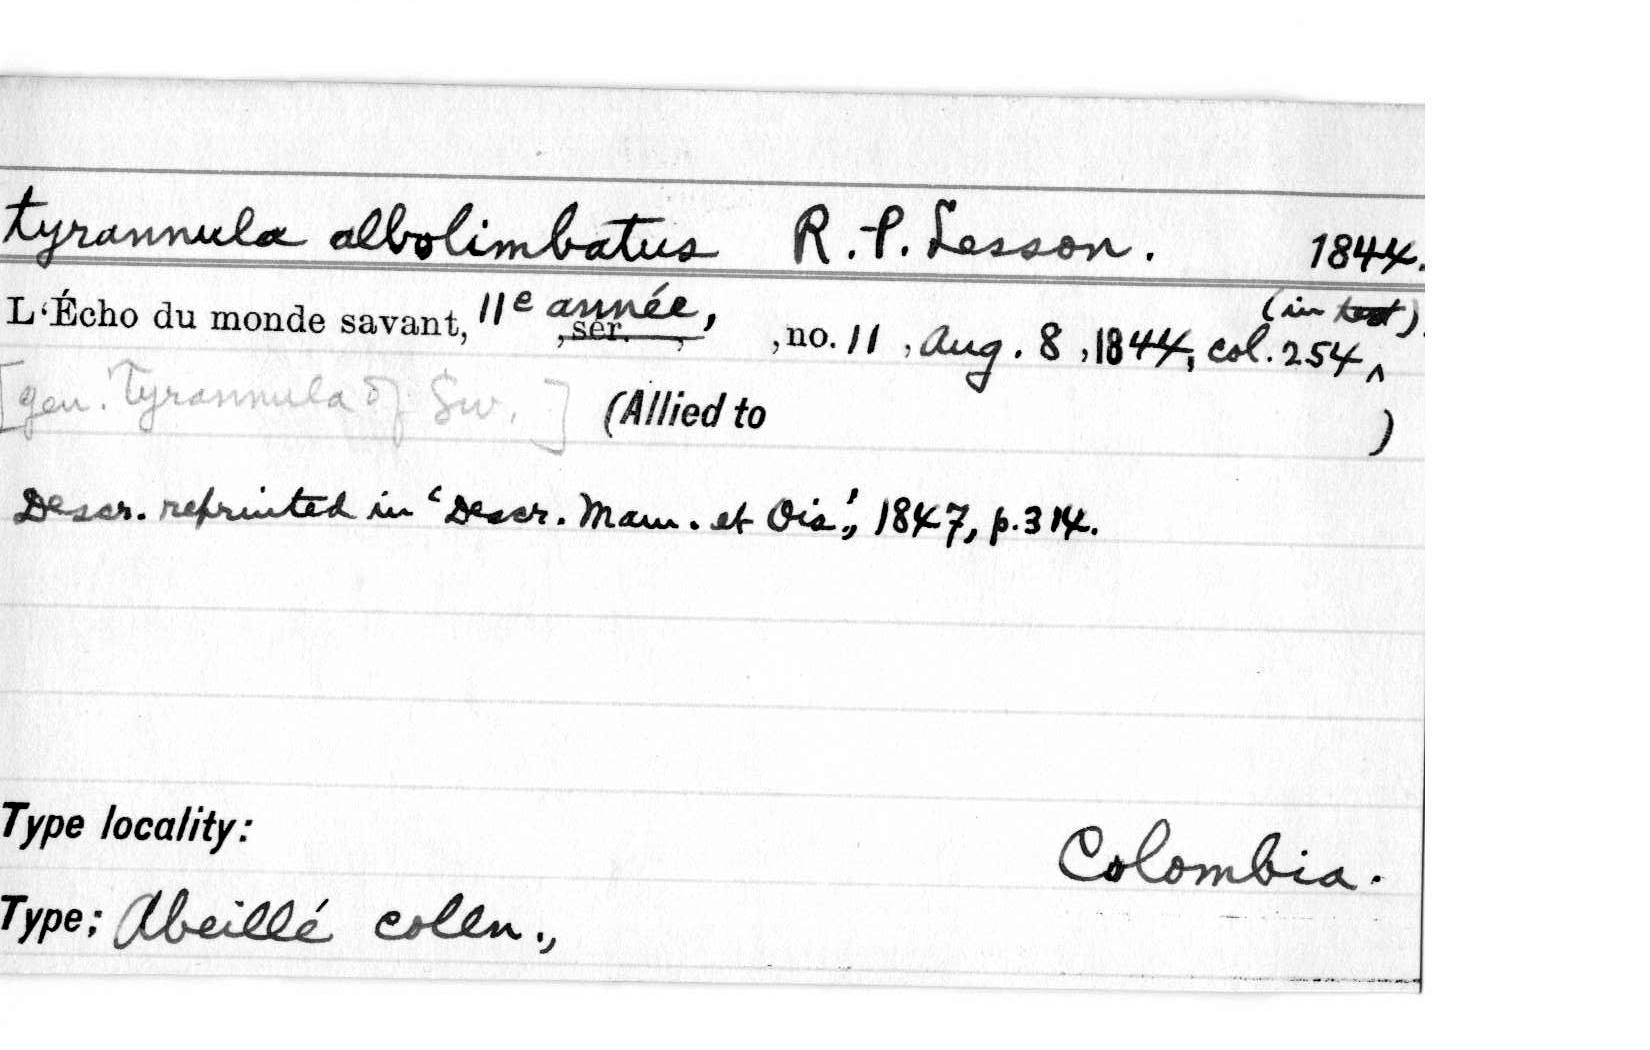 Tyrannula albolimbatus R.-P. Lesson. 1844.
L'Écho du monde savant, 11e année, ,ser. , ,no. 11 , Aug. 8 ,1844, col. 254 (in text).
[gen. Tyrannula of Sw.] (Allied to )
Descr. reprinted in 'Descr. Mam. et Ois.', 1847, p. 314.
Type locality: Colombia.
Type; Abeillé colln.,